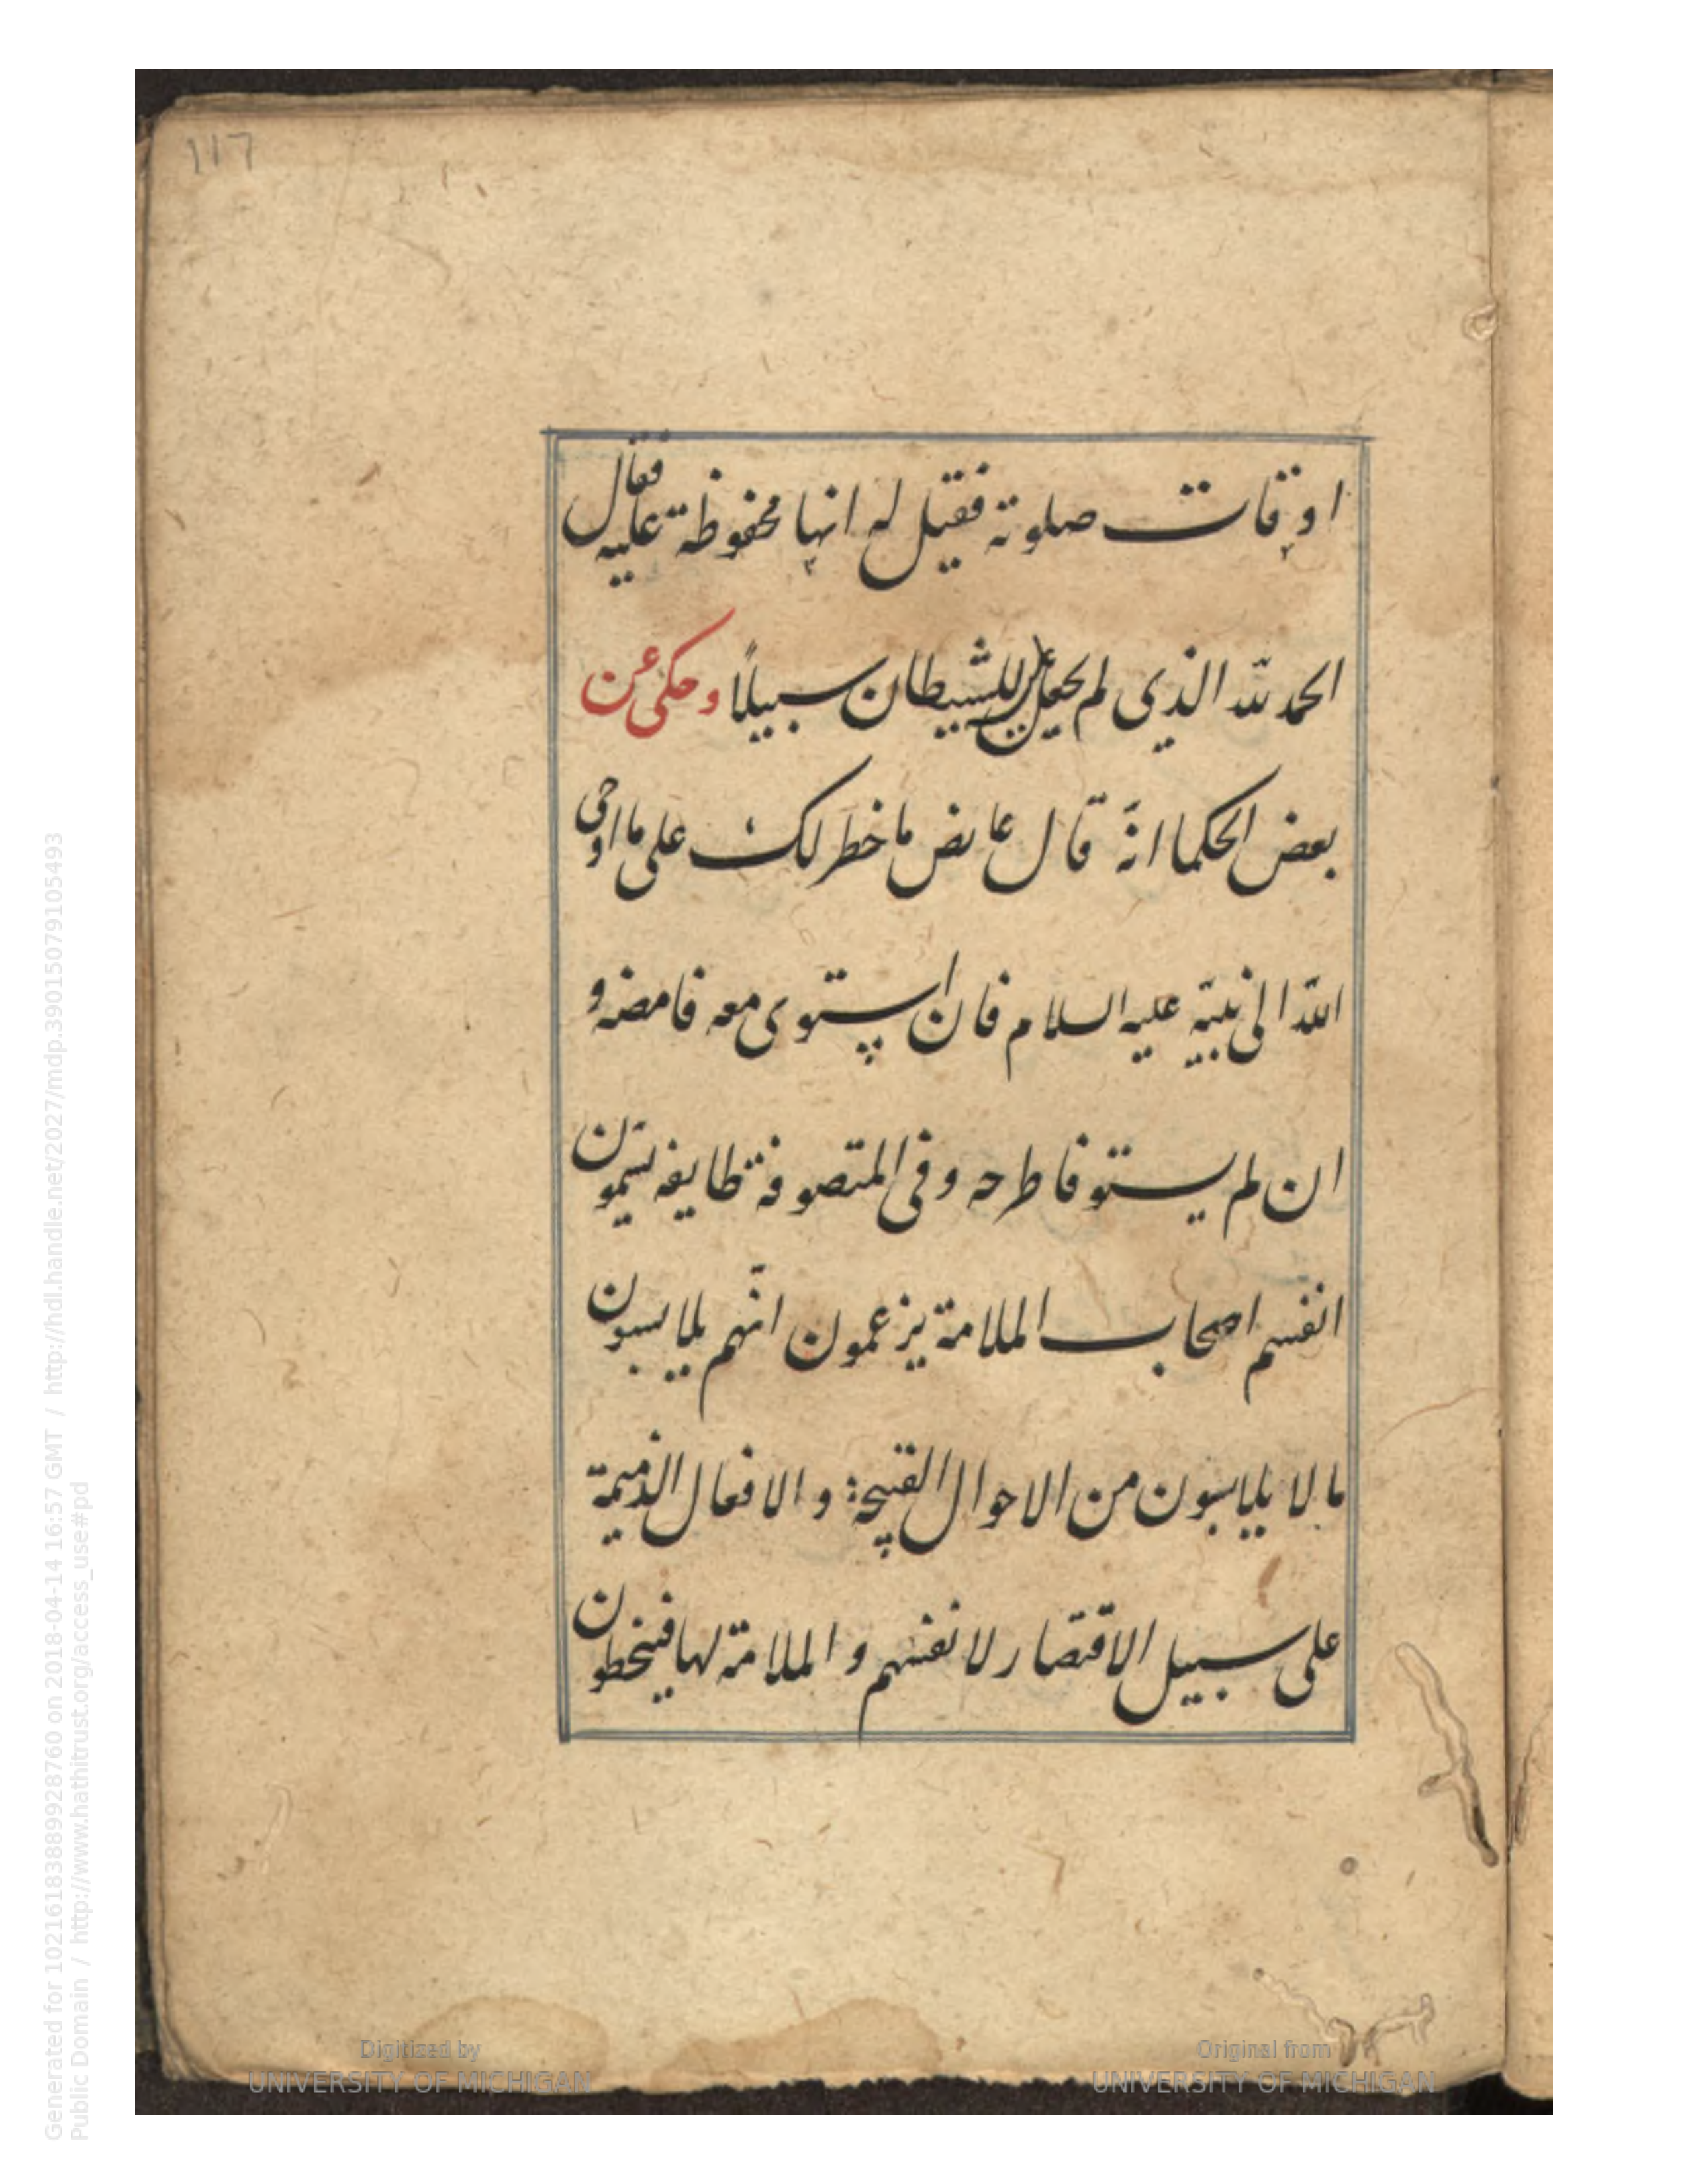 117
اوقات صلوته فقيل له انها محفوظة عليه فقال
الحمد لله الذى لم يجعل للشيطان سبيلًا وحكى عن
بعض الحكما انّه قال عارض ما خطر لك على ما اوحى
اللّه الى نبيّه عليه السلام فان استوى معه فامضه و
ان لم يستو فاطرحه وفى المتصوفة طايفه يسمّون
انفسهم اصحاب الملامة يزعمون انّهم يلابسون
ما لا يلابسون من الاحوال القبيحة والافعال الذميمة
على سبيل الاقتصار لانفسهم والملامة لها فينحطون
Generated for 102161838899928760 on 2018-04-14 16:57 GMT / http://hdl.handle.net/2027/mdp.39015079105493
Public Domain / http://www.hathitrust.org/access_use#pd
Digitized by
UNIVERSITY OF MICHIGAN
Original from
UNIVERSITY OF MICHIGAN